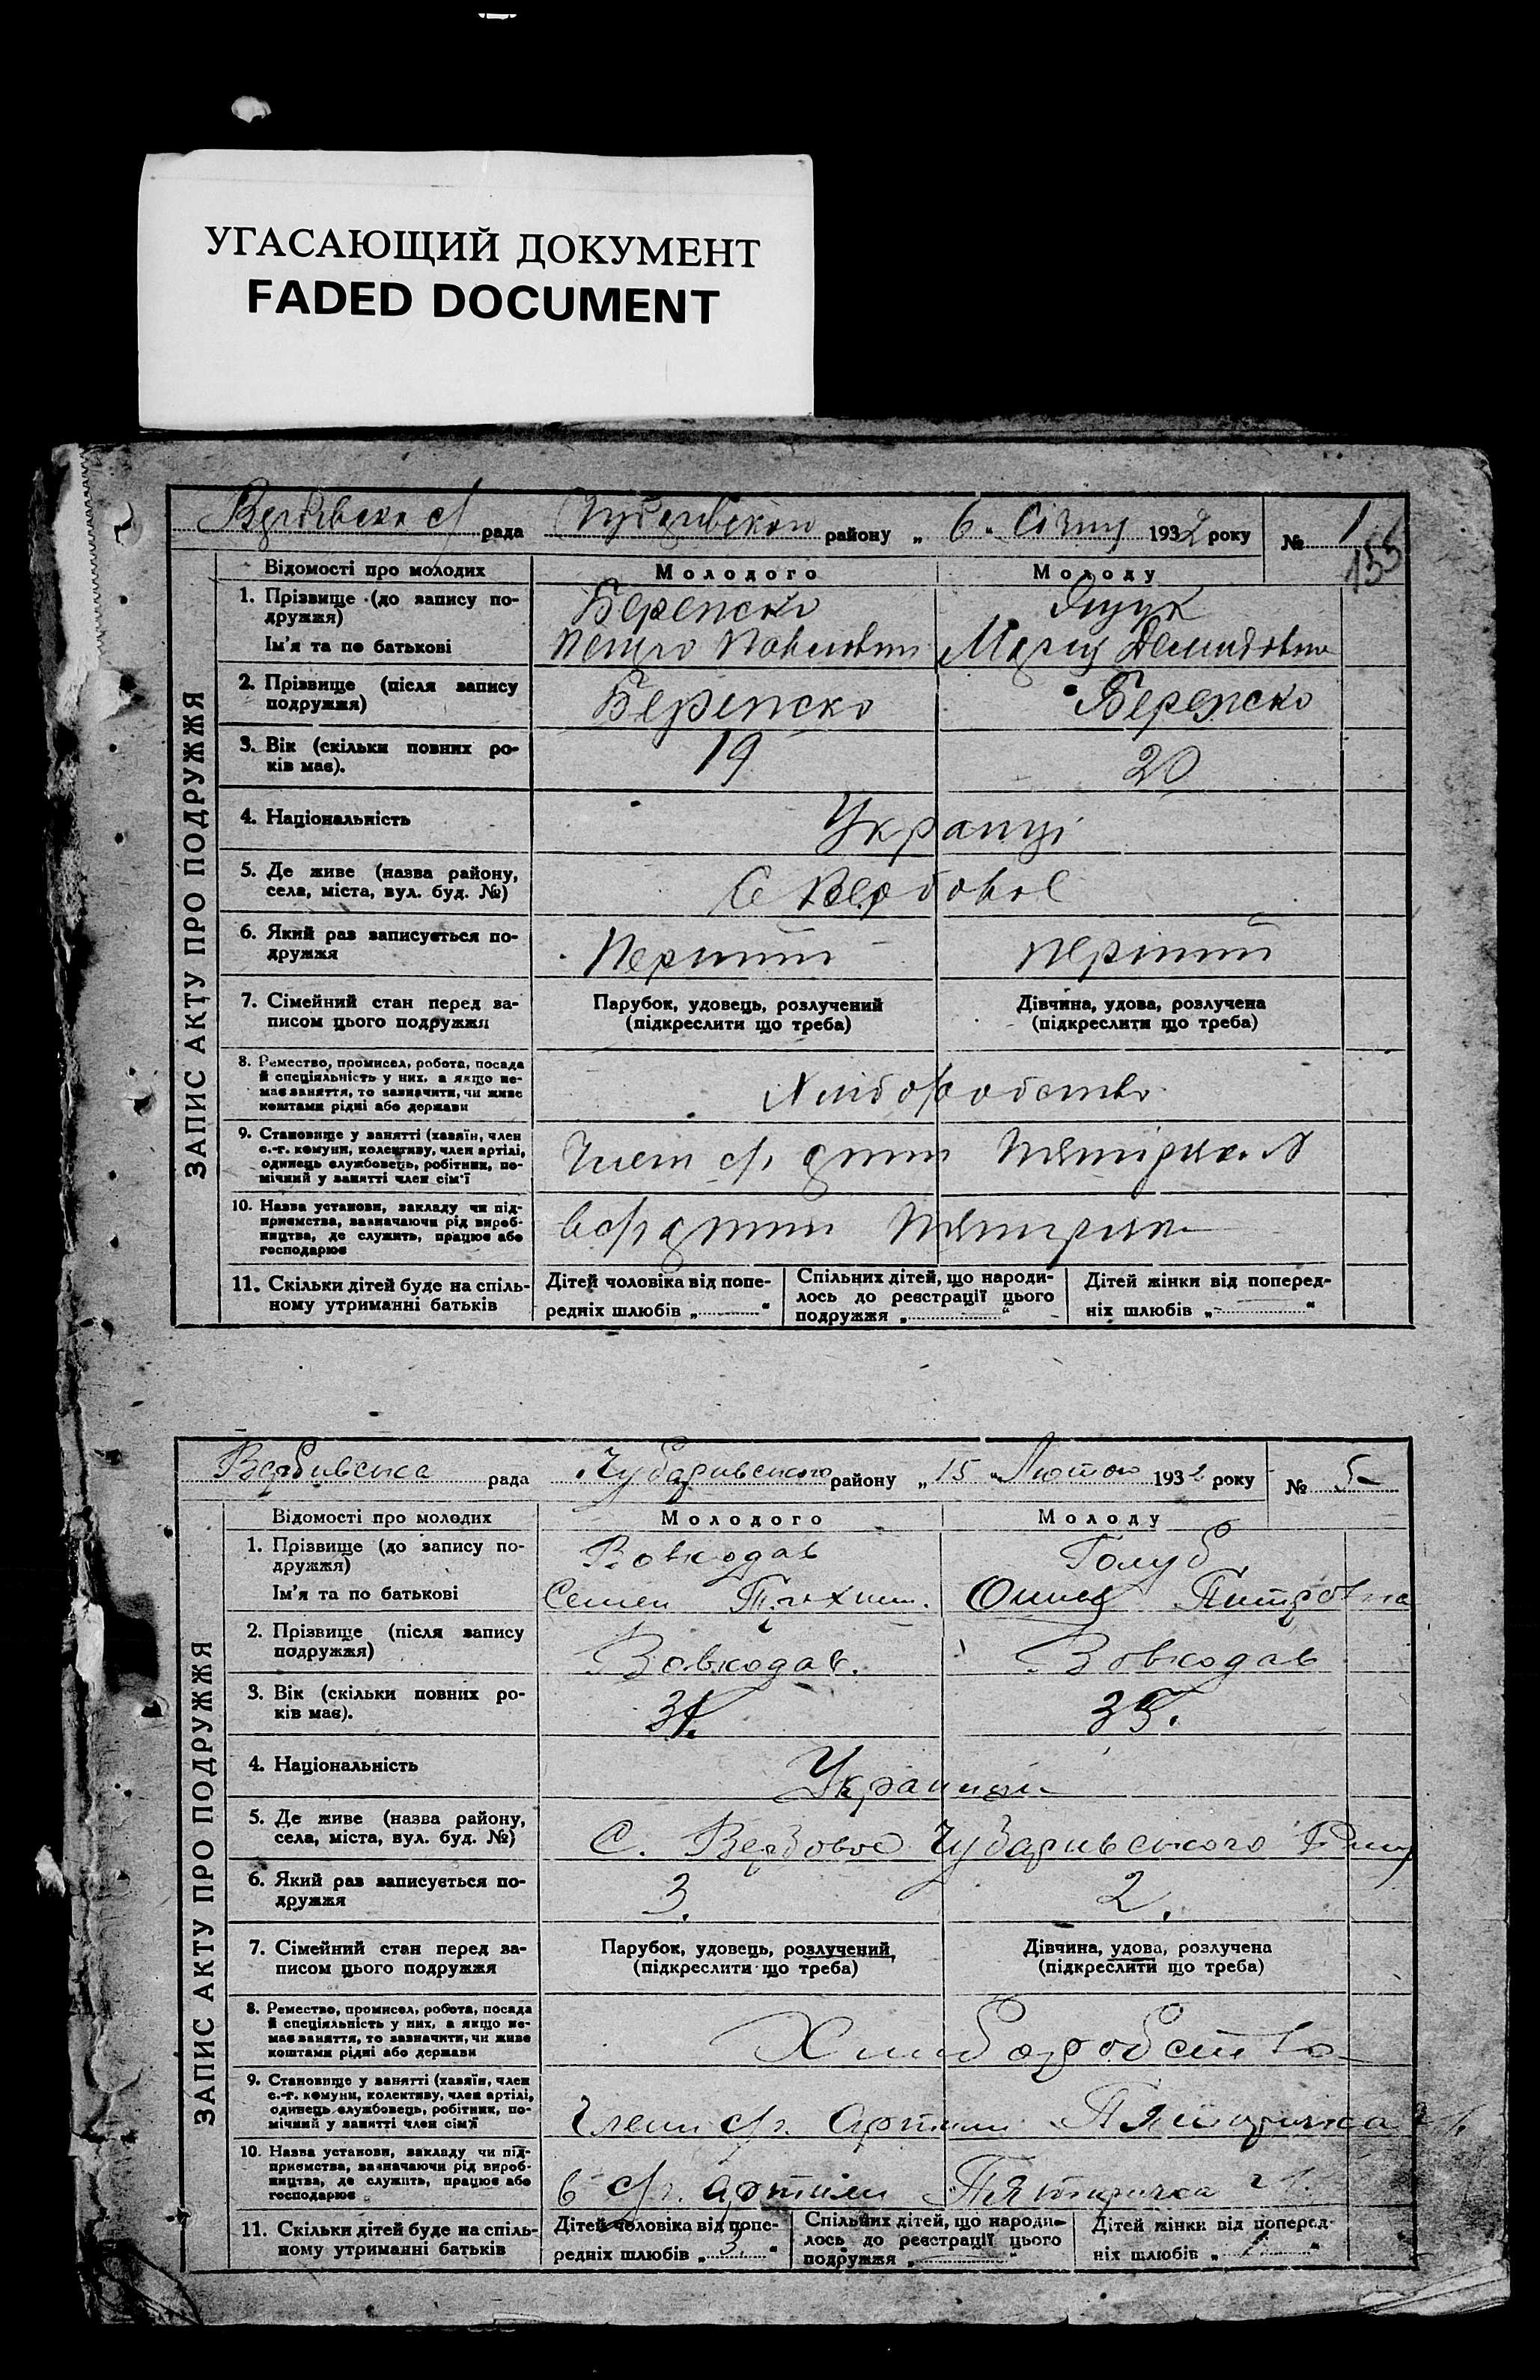 УГАСАЮЩИЙ ДОКУМЕНТ
FADED DOCUMENT
рада району „ 6 " Січня 1932 року № 1
ЗАПИС АКТУ ПРО ПОДРУЖЖЯ
Відомості про молодих Молодого Молоду
1. Прізвище (до запису по-
дружжя)
Ім'я та по батькові Петро Павлович Демидовна
2. Прізвище (після запису
подружжя)
3. Вік (скільки повних ро-
ків має). 19 20
4. Національність Українці
5. Де живе (назва району,
села, міста, вул. буд. №) с Вербовое
6. Який раз записується по-
дружжя Перший перший
7. Сімейний стан перед за-
писом цього подружжя
Парубок, удовець, розлучений Дівчина, удова, розлучена
(підкреслити що треба) (підкреслити що треба)
8. Ремество, промисел, робота, посада
й спеціяльність у них, а якщо не-
має заняття, то зазначити, чи живе
коштами рідні або держави
Хлиборобство
9. Становище у занятті (хазяїн, член
с.-г. комуни, колективу, член артілі,
одинець службовець, робітник, по-
мічний у занятті член сім'ї
10. Назва установи, закладу чи під-
приємства, зазначаючи рід вироб-
ництва, де служить, працює або
господарює
11. Скільки дітей буде на спіль-
ному утриманні батьків
Дітей чоловіка від попе-
редніх шлюбів „ — "
Спільних дітей, що народи-
лось до реєстрації цього
подружжя „ "
Дітей жінки від поперед-
ніх шлюбів „ — "
Вербивська рада Чубаривського району „ 15 " Лютого 1932 року № 5
ЗАПИС АКТУ ПРО ПОДРУЖЖЯ
Відомості про молодих Молодого Молоду
1. Прізвище (до запису по-
дружжя) Вовкодав Голуб
Ім'я та по батькові Семен Петровна
2. Прізвище (після запису
подружжя) Вовкодав. Вовкодав
3. Вік (скільки повних ро-
ків має). 35.
4. Національність
5. Де живе (назва району,
села, міста, вул. буд. №) С. Вербовое Чубаривського
6. Який раз записується по-
дружжя 3. 2.
7. Сімейний стан перед за-
писом цього подружжя
Парубок, удовець, розлучений Дівчина, удова, розлучена
(підкреслити що треба) (підкреслити що треба)
8. Ремество, промисел, робота, посада
й спеціяльність у них, а якщо не-
має заняття, то зазначити, чи живе
коштами рідні або держави
Хлиборобство
9. Становище у занятті (хазяїн, член
с.-г. комуни, колективу, член артілі,
одинець службовець, робітник, по-
мічний у занятті член сім'ї
Члени с/г. Артили Пятиричка
10. Назва установи, закладу чи під-
приємства, зазначаючи рід вироб-
ництва, де служить, працює або
господарює
в с/г. артили Пятиричка
11. Скільки дітей буде на спіль-
ному утриманні батьків
Дітей чоловіка від попе-
редніх шлюбів „ 3. "
Спільних дітей, що народи-
лось до реєстрації цього
подружжя „ — "
Дітей жінки від поперед-
ніх шлюбів „ 1 "